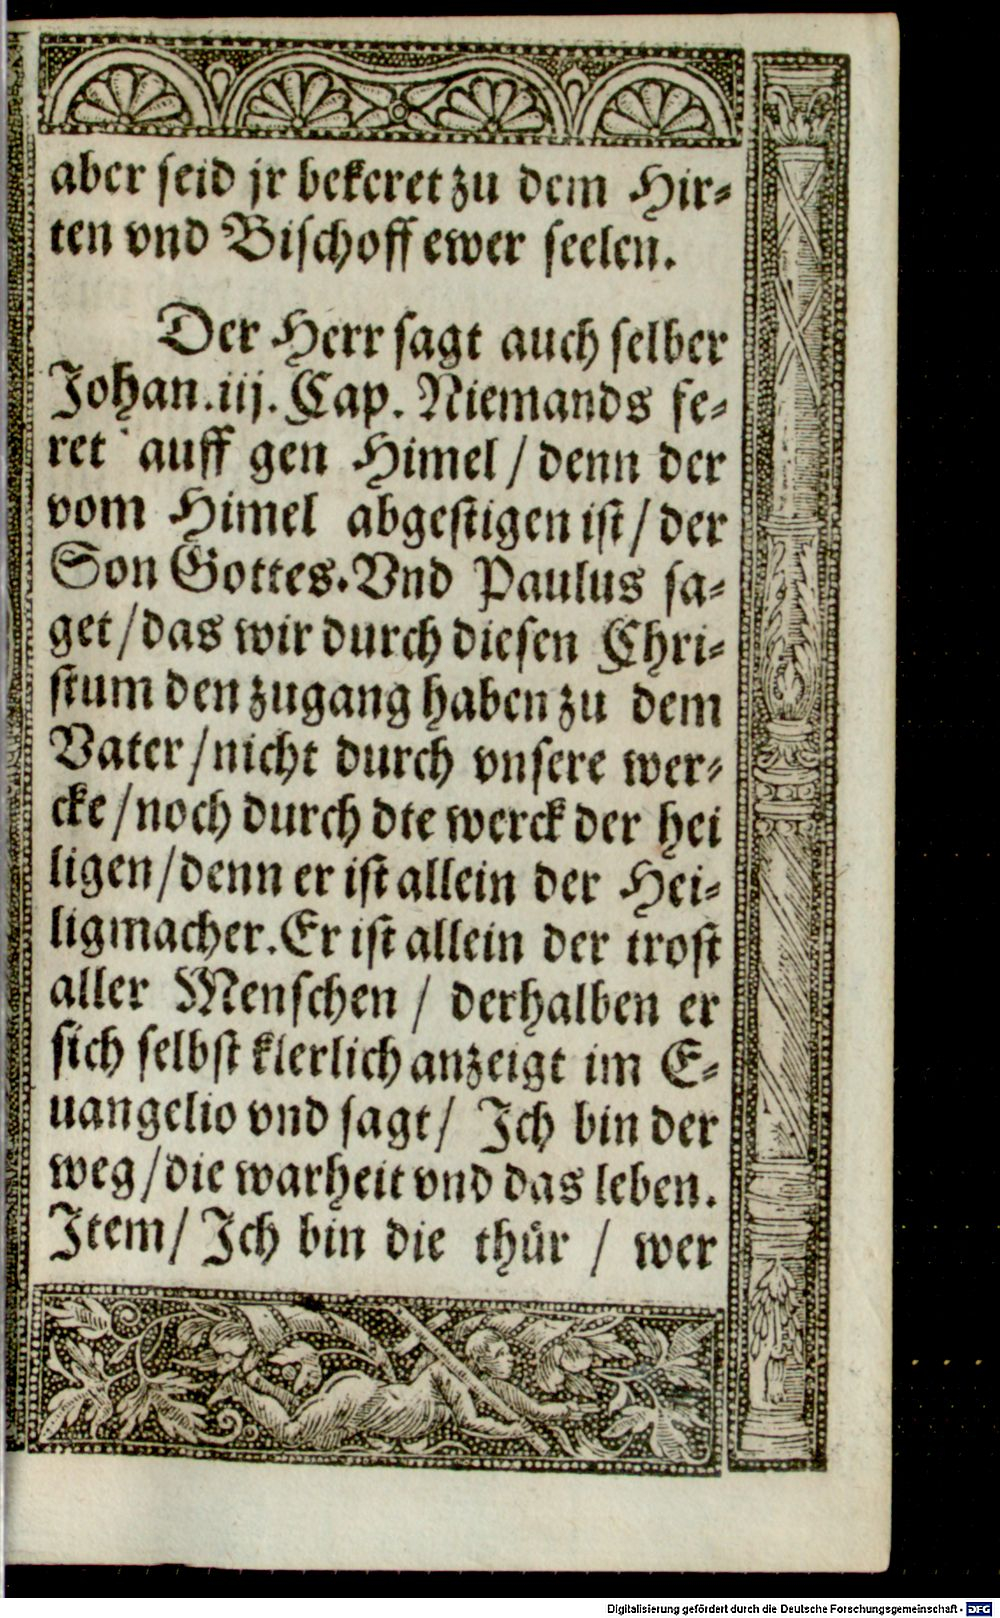 aber seid jr bekeret zu dem Hir⸗
ten vnd Bischoff ewer seelen.
Der Herr sagt auch selber
Johan.iij. Cap. Niemands fe⸗
ret auff gen Himel / denn der
vom Himel abgestigen ist / der
Son Gottes. Vnd Paulus sa⸗
get / das wir durch diesen Chri⸗
stum den zugang haben zu dem
Vater / nicht durch vnsere wer⸗
cke / noch durch dte werck der hei
ligen / denn er ist allein der Hei⸗
ligmacher. Er ist allein der trost
aller Menschen / derhalben er
sich selbst klerlich anzeigt im E⸗
uangelio vnd sagt / Ich bin der
weg / die warheit vnd das leben.
Item / Ich bin die thür / wer
Digitalisierung gefördert durch die Deutsche Forschungsgemeinschaft - DFG